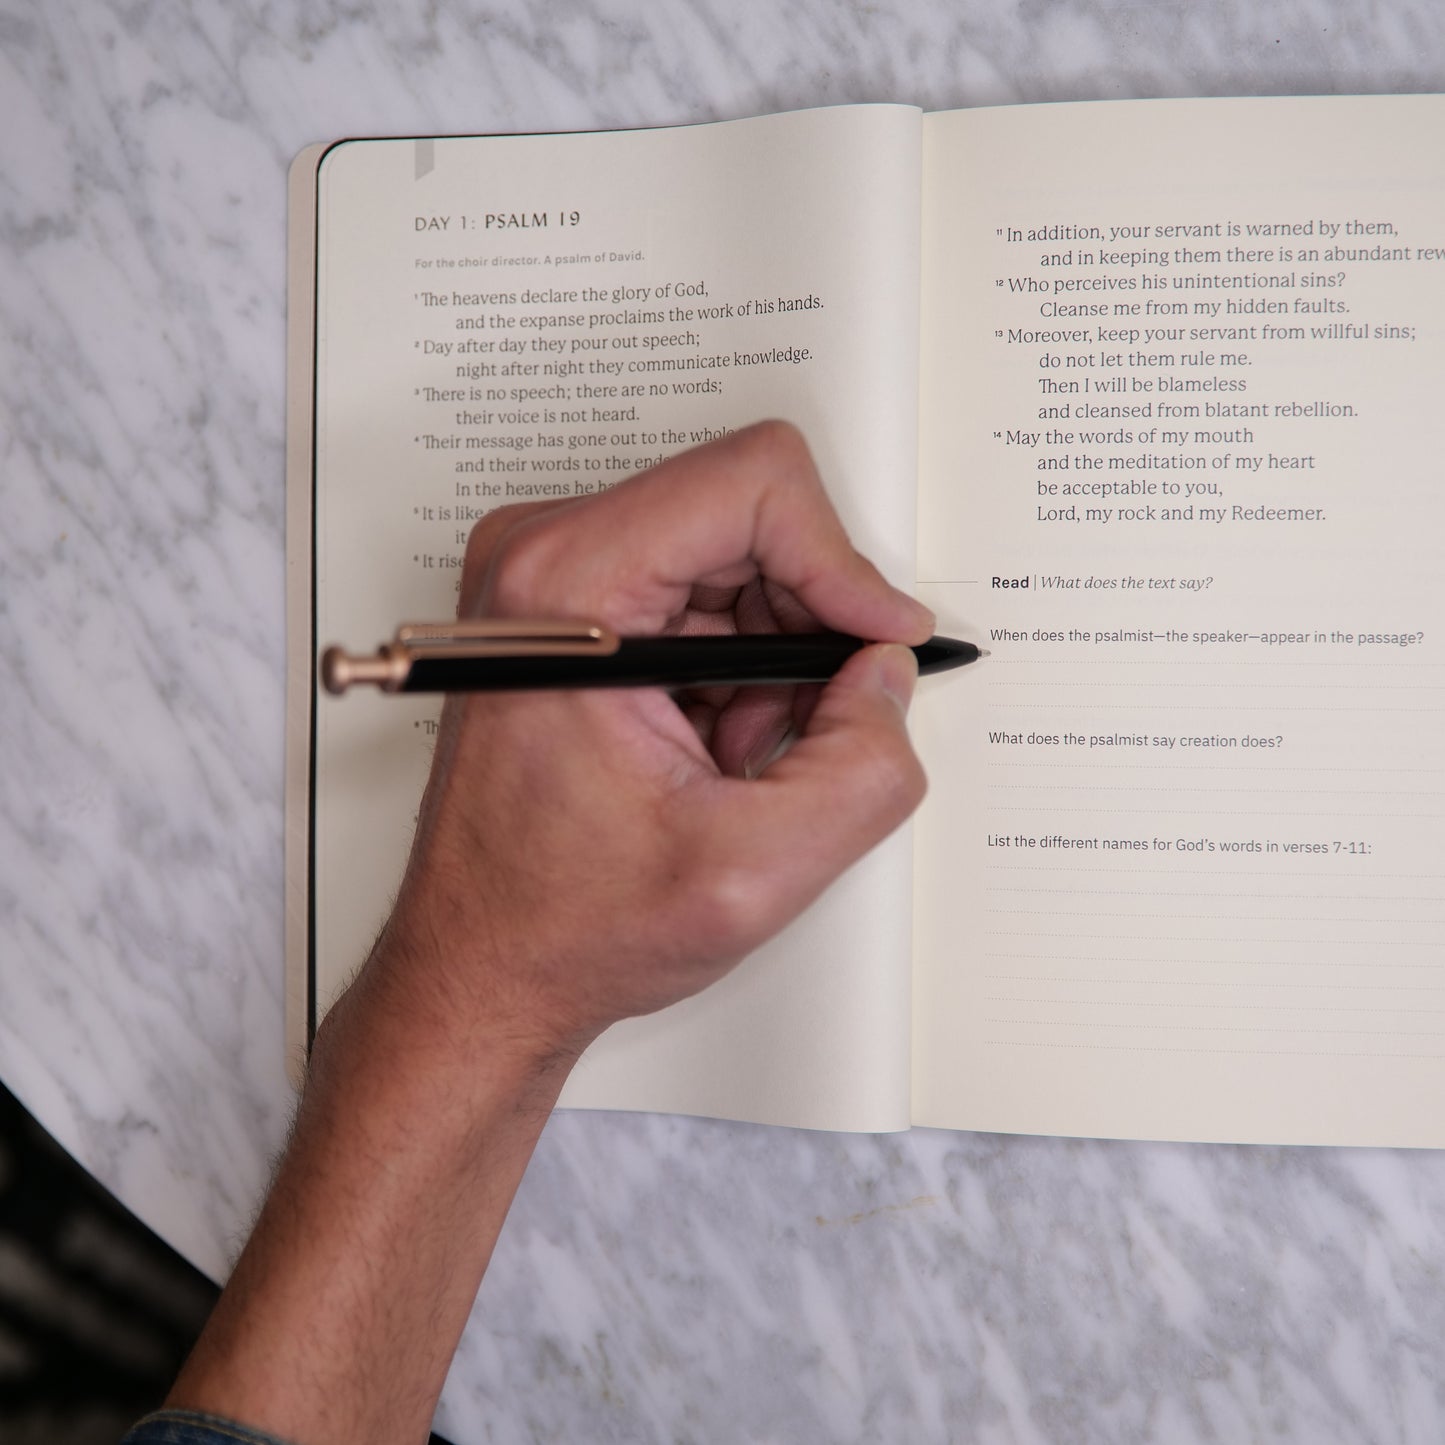 DAY 1: PSALM 19
For the choir director. A psalm of David.
1 The heavens declare the glory of God,
and the expanse proclaims the work of his hands.
2 Day after day they pour out speech;
night after night they communicate knowledge.
3 There is no speech; there are no words;
their voice is not heard.
4 Their message has gone out to the whole
and their words to the ends
In the heavens he
5 It is like
it
6 It
11 In addition, your servant is warned by them,
and in keeping them there is an abundant
12 Who perceives his unintentional sins?
Cleanse me from my hidden faults.
13 Moreover, keep your servant from willful sins;
do not let them rule me.
Then I will be blameless
and cleansed from blatant rebellion.
14 May the words of my mouth
and the meditation of my heart
be acceptable to you,
Lord, my rock and my Redeemer.
Read | What does the text say?
When does the psalmist—the speaker—appear in the passage?
What does the psalmist say creation does?
List the different names for God's words in verses 7-11: